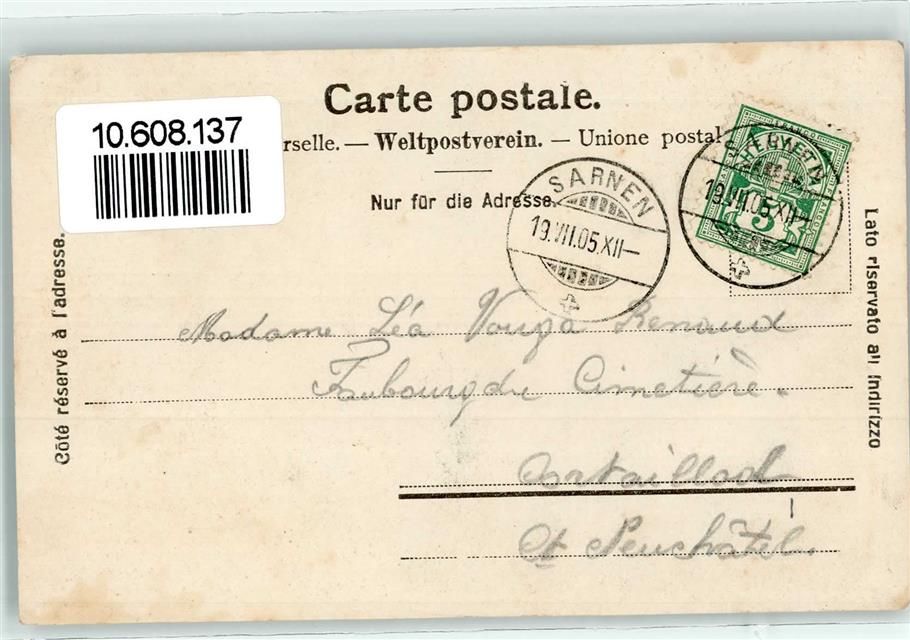 Carte postale.
10.608.137
rselle. — Weltpostverein. — Unione postal
Nur für die Adresse.
SARNEN
19.VII.05.XII—
HELVETIA
FRANCO
5
19.VII.05.XII—
Côté réservé à l'adresse.
Lato riservato all indirizzo
Madame Léa Vouga Renaud
Faubourg du Cimetière.
Cortaillod
Ct Neuchâtel.